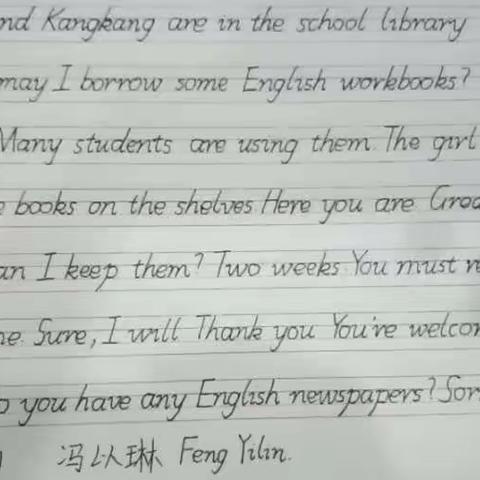 nd Kangkang are in the school library
may I borrow some English workbooks?
Many students are using them. The girl
books on the shelves Here you are Grea
an I keep them? Two weeks You must r
ne. Sure, I will Thank you You're welcom
o you have any English newspapers? Sor
冯以琳 Feng Yilin.